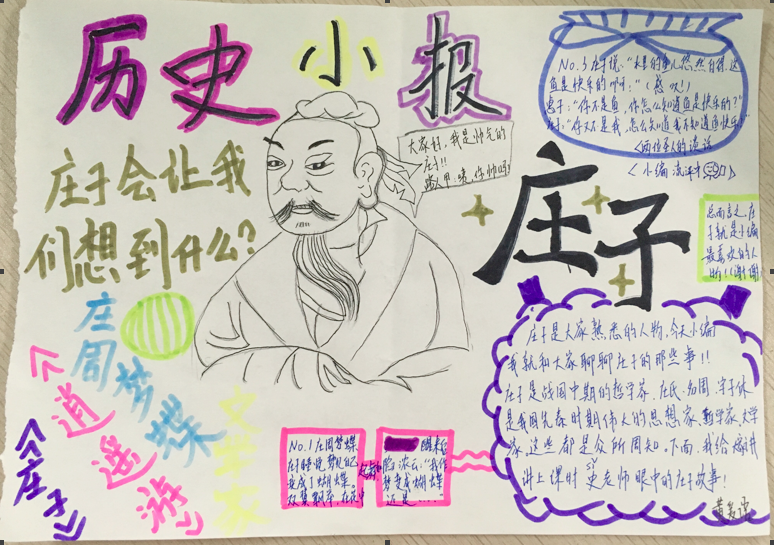 历史小报
庄子会让我
们想到什么?
大家好,我是帅气的
庄子!!
路人甲:嘿,你帅吗?
No.3 庄子说:"水里的鱼儿悠然自得,这
鱼是快乐的啊!"
惠子:"你不是鱼,你怎么知道鱼是快乐的?"
庄子:"你又不是我,怎么知道我不知道鱼快乐
<两位圣人的谈话
庄子
总而言之,庄
子就是小编
最喜欢的人
物!!谢谢
庄周梦蝶
《逍遥游》
《庄子》
文学家
No.1 庄周梦蝶
庄子睡觉,梦见自己
变成了蝴蝶。
醒来后
梦变成蝴蝶
还是……"
庄子是大家熟悉的人物,今天小编
我就和大家聊聊庄子的那些事!!
庄子是战国中期的哲学家,庄氏,名周,字子休
是我国先秦时期伟大的思想家,哲学家,文学
家,这些都是众所周知。下面,我给
讲上课时 史老师眼中的庄子故事!